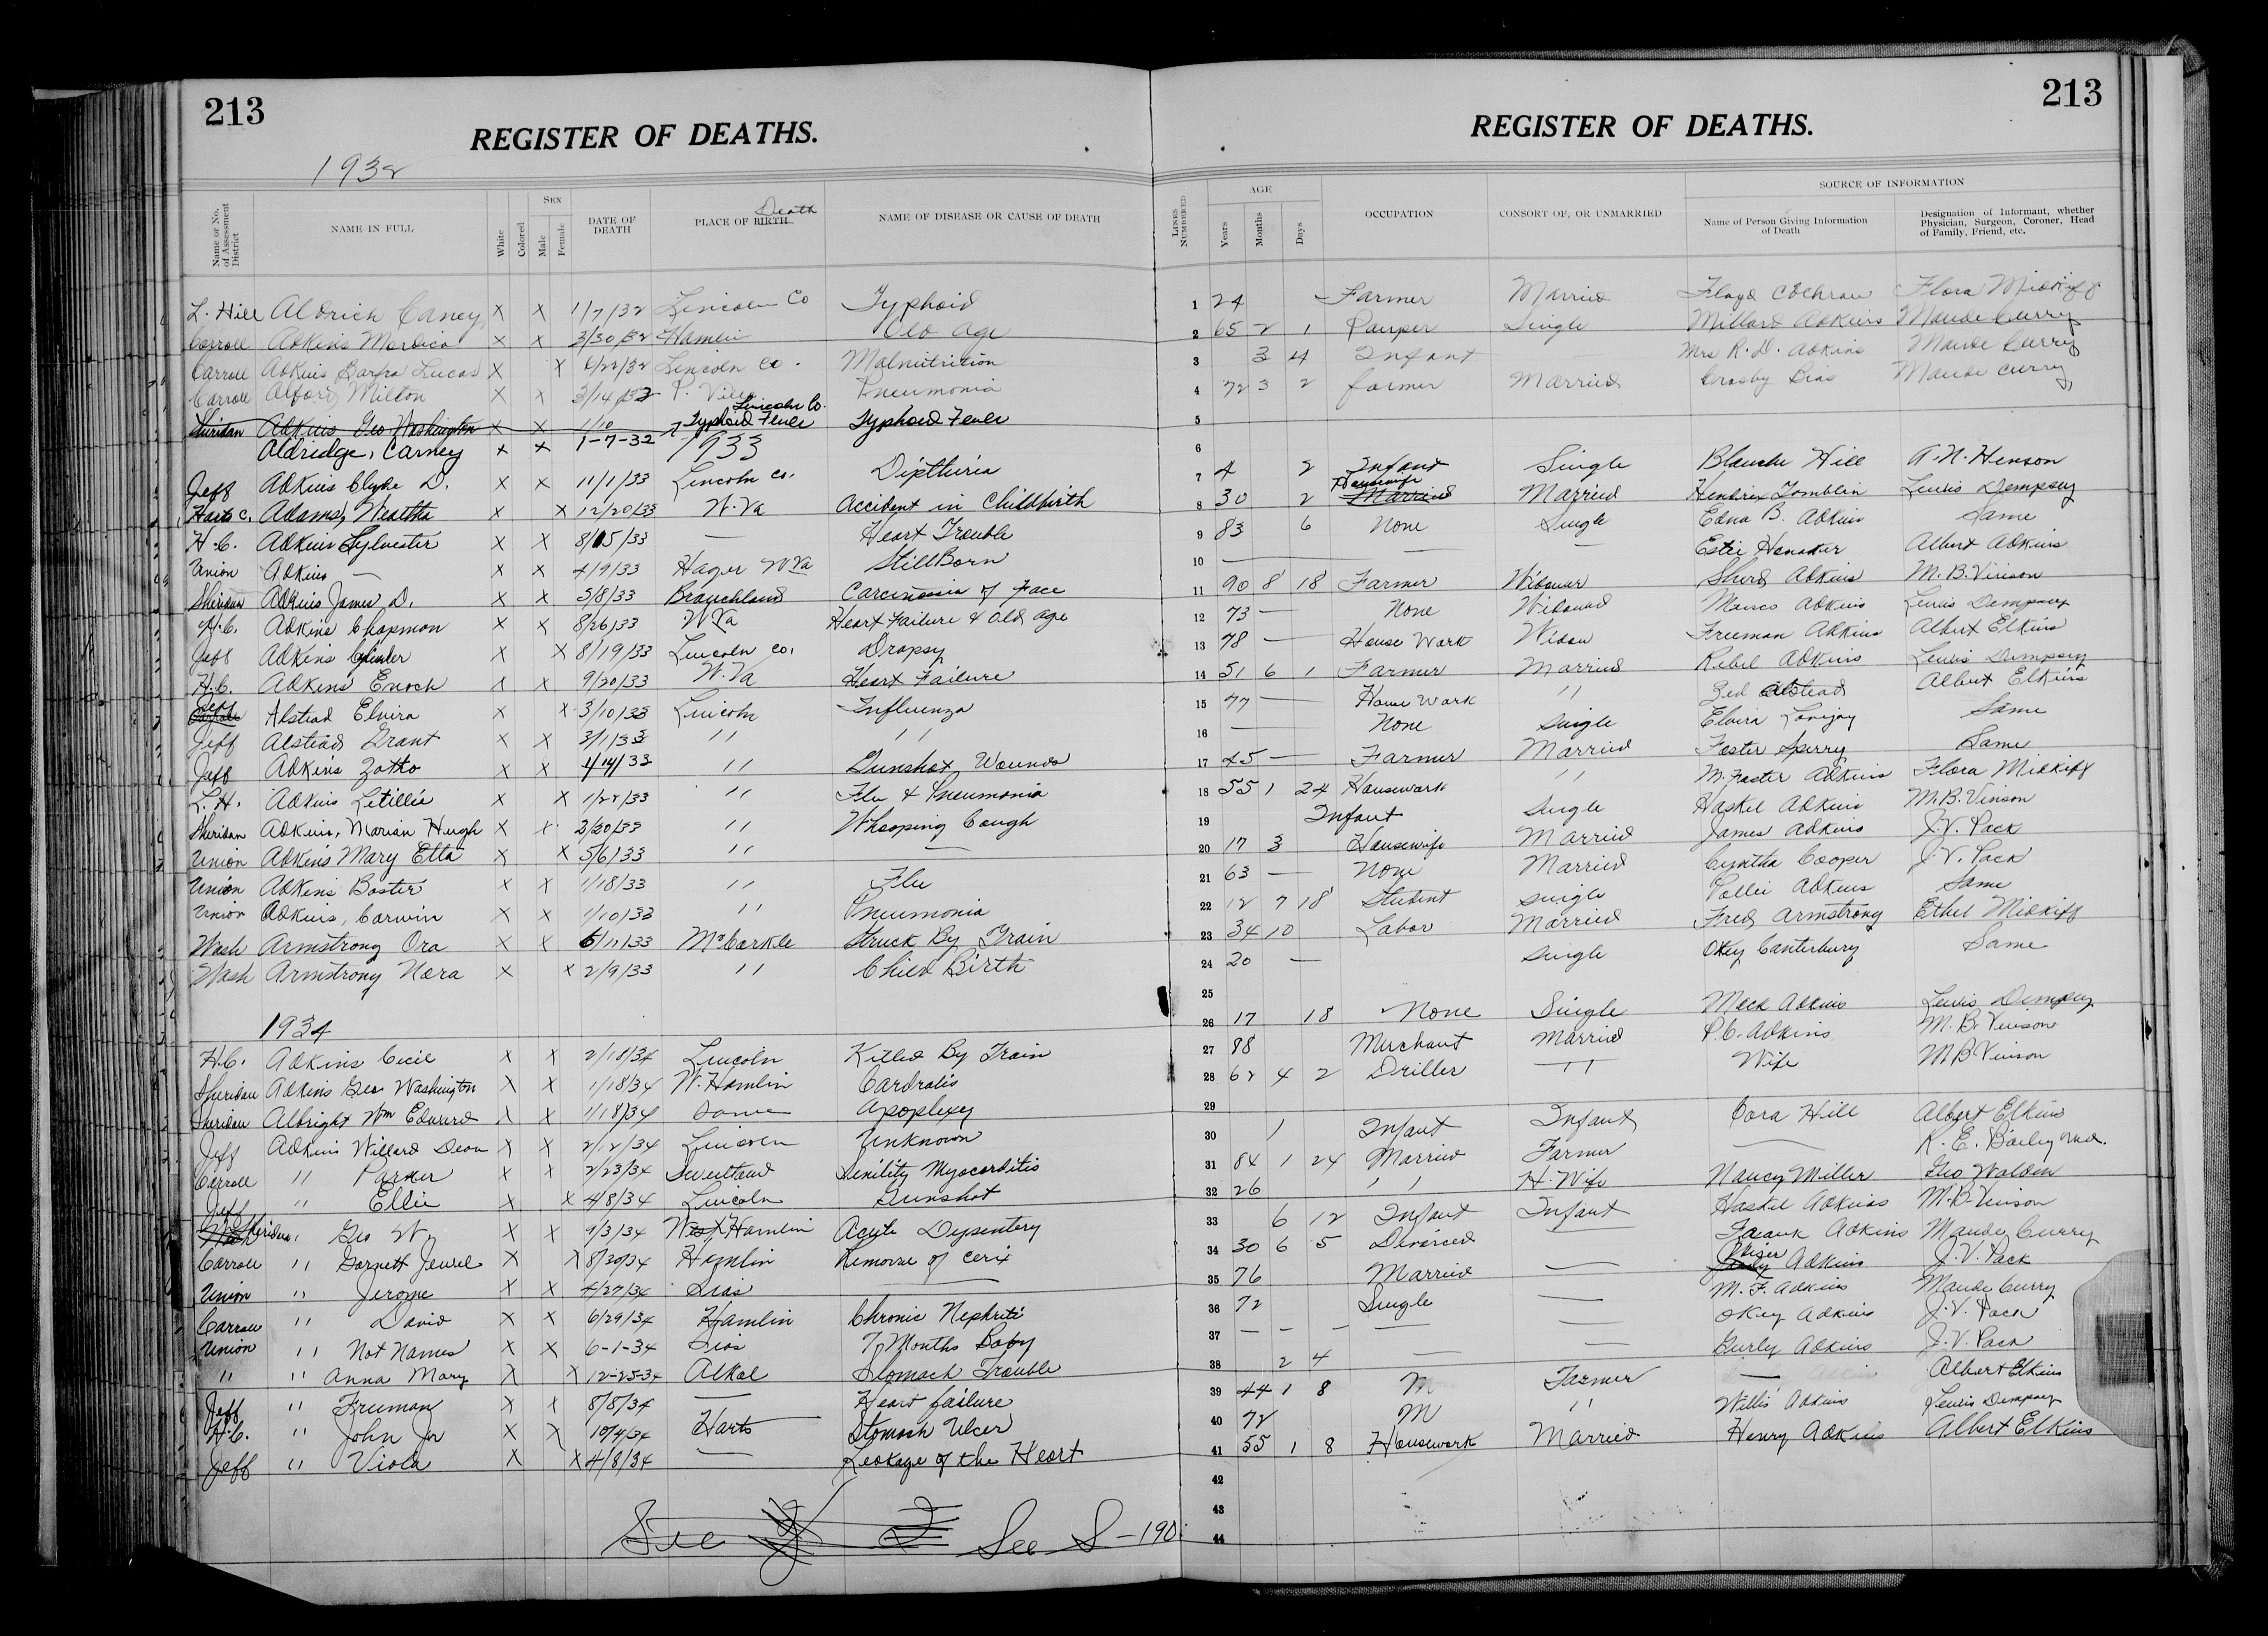 213
REGISTER OF DEATHS.
1932
Name or No. of Assessment District
NAME IN FULL
White
Colored
SEX
Male
Female
DATE OF DEATH
PLACE OF BIRTH Death
NAME OF DISEASE OR CAUSE OF DEATH
L. Hill Aldrich Caney X X 1/7/32 Lincoln Co Typhoid
Carroll Adkins Mordica X X 3/30/32 Hamlin Old Age
Carroll Adkins Lucas X X 6/22/32 Lincoln Co. Malnutrition
Carroll Alford Milton X X 3/14/32 Pneumonia
Sheridan Adkins Geo Washington X X 1/10 Typhoid Fever Lincoln Co. Typhoid Fever
Aldridge, Carney X X 1-7-32 1933
Jeff Adkins Clyde D. X X 11/1/33 Lincoln Co. Diptheria
Harts C. Adams, Wealtha X X 12/20/33 W.Va Accident in Childbirth
H.C. Adkins Sylvester X X 8/15/33 — Heart Trouble
Union Adkins — X X 4/9/33 Hager W Va StillBorn
Sheridan Adkins James D. X X 5/8/33 Branchland Carcinosia of Face
H.C. Adkins Chapmon X X 8/26/33 W Va Heart Failure & Old Age
Jeff Adkins X X 8/19/33 Lincoln Co. Dropsy
H.C. Adkins Enoch X X 9/20/33 W.Va Heart Failure
Jeff Alstead Elvira X X 3/10/33 Lincoln Influenza
Jeff Alstead Grant X X 3/1/33 " " "
Jeff Adkins Zatto X X 1/14/33 " Gunshot Wounds
L.H. Adkins Letillie X X 1/22/33 " Flu & Pneumonia
Sheridan Adkins, Marian Hugh X X 2/20/33 " Whooping Cough
Union Adkins Mary Etta X X 5/6/33 " —
Union Adkins Boster X X 1/18/33 " Flu
Union Adkins, Corwin X X 1/10/33 " Pneumonia
Wash Armstrong Ora X X 6/11/33 McCorkle Struck By Train
Wash Armstrong Nora X X 2/9/33 " Child Birth
1934
H.C. Adkins Cecil X X 2/18/34 Lincoln Killed By Train
Sheridan Adkins Geo Washington X X 1/18/34 W. Hamlin Cardralis
Sheridan Albright Wm Edward X X 1/18/34 Same Apoplexy
Jeff Adkins Willard Dean X X 2/12/34 Lincoln Unknown
Carroll " Parker X X 2/23/34 Sweetland Senility Myocarditis
Jeff " Ellie X X 4/8/34 Lincoln Gunshot
Sheridan " Geo W. X X 9/3/34 West Hamlin Acute Dysentery
Carroll " Garnett Jewel X X 8/30/34 Hamlin Remorse of
Union " Jerome X X 4/27/34 Sias —
Carroll " David X X 6/29/34 Hamlin Chronic Nephriti
Union " Not Named X X 6-1-34 Sias 7 Months Baby
" " Anna Mary X X 12-25-34 Alkol Stomach Trouble
Jeff " Freeman X X 8/8/34 — Heart failure
H.C. " John Jr X X 10/4/34 Harts Stomach Ulcer
Jeff " Viola X X 4/8/34 — Leakage of the Heart
See See S-190
213
REGISTER OF DEATHS.
LINES NUMBERED
AGE
Years
Months
Days
OCCUPATION
CONSORT OF, OR UNMARRIED
SOURCE OF INFORMATION
Name of Person Giving Information of Death
Designation of Informant, whether Physician, Surgeon, Coroner, Head of Family, Friend, etc.
1 24 Farmer Married Floyd Cochran Flora Midkiff
2 65 2 1 Pauper Single Millard Adkins Maude Curry
3 3 4 Infant Mrs R. D. Adkins Maude Curry
4 72 3 2 farmer Married Crosby Bias Maude Curry
5
6
7 4 2 Infant Single Blanche Hill A.N. Henson
8 30 2 Housewife Married Married Hendrix Tomblin Lewis Dempsey
9 83 6 None Single Edna B. Adkins Same
10 — — — Albert Adkins
11 90 8 18 Farmer Widower Sherd Adkins M.B. Vinson
12 73 — None Widowed Adkins Lewis Dempsey
13 78 — House Work Widow Freeman Adkins Albert Elkins
14 51 6 1 Farmer Married Rebel Adkins Lewis Dempsey
15 77 — House Work " Alstead Albert Elkins
16 — None Single Elvira Lovejoy Same
17 45 — Farmer Married Foster Sperry Same
18 55 1 24 Housework " M. Foster Adkins Flora Midkiff
19 Infant Single Haskel Adkins M.B. Vinson
20 17 3 Housewife Married James Adkins J.V. Pack
21 63 — None Married Cyntha Cooper J.V. Pack
22 12 7 18 Student Single Adkins Same
23 34 10 Labor Married Fred Armstrong Ethel Midkiff
24 20 — Single Okey Canterbury Same
25
26 17 18 None Single Mack Adkins Lewis Dempsey
27 88 Merchant Married P.C. Adkins M.B. Vinson
28 62 4 2 Driller " Wife M B Vinson
29
30 1 Infant Infant Cora Hill Albert Elkins
31 84 1 24 Married Farmer — K. E. Bailey Md.
32 26 " H. Wife Nancy Miller Geo Walden
33 6 12 Infant Infant Haskel Adkins M.B. Vinson
34 30 6 5 Divorced — Frank Adkins Maude Curry
35 76 Married — Adkins J.V. Pack
36 72 Single — M.F. Adkins Maude Curry
37 — — — — — Okey Adkins J.V. Pack
38 2 4 — — Gurly Adkins J.V. Pack
39 44 1 8 M Farmer — Albert Elkins
40 72 M " Willis Adkins Lewis Dempsey
41 55 1 8 Housework Married Henry Adkins Albert Elkins
42
43
44